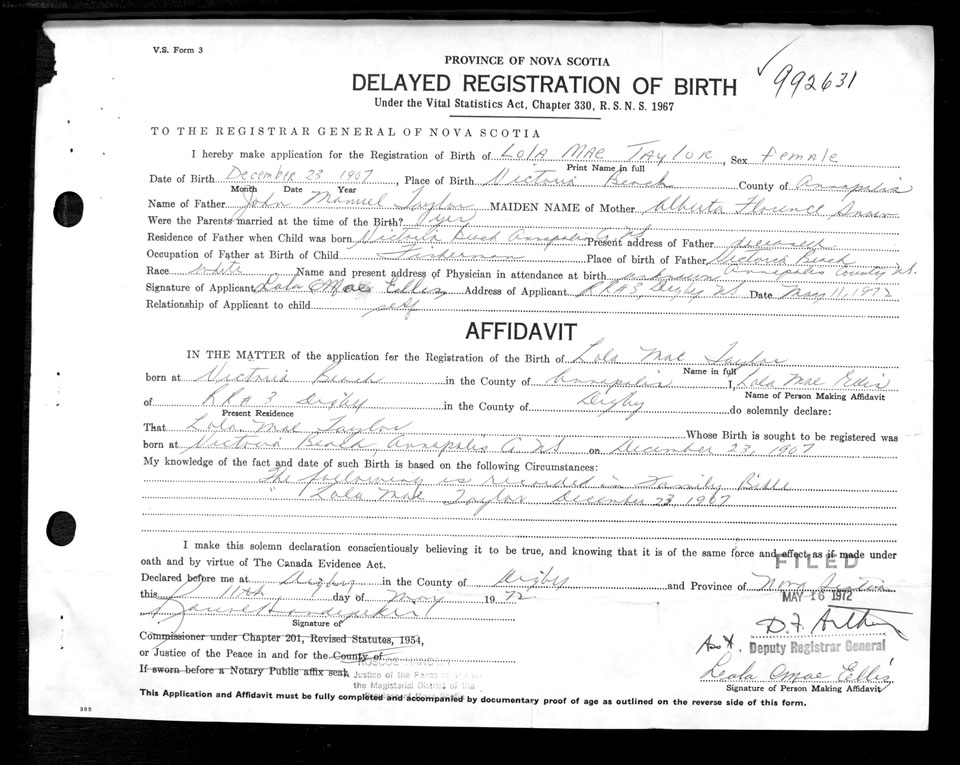 V.S. Form 3
PROVINCE OF NOVA SCOTIA
DELAYED REGISTRATION OF BIRTH
992631
Under the Vital Statistics Act, Chapter 330, R.S.N.S. 1967
TO THE REGISTRAR GENERAL OF NOVA SCOTIA
I hereby make application for the Registration of Birth of Lola Mae Taylor, Sex female
Print Name in full
Date of Birth December 23 1907, Place of Birth Victoria Beach County of Annapolis
Month Date Year
Name of Father John Manuel Taylor MAIDEN NAME of Mother Alberta Florence
Were the Parents married at the time of the Birth? yes
Residence of Father when Child was born Victoria Beach Annapolis Co NS Present address of Father deceased
Occupation of Father at Birth of Child Fisherman Place of birth of Father Victoria Beach
Race white Name and present address of Physician in attendance at birth unknown Annapolis County NS.
Signature of Applicant Lola Mae Ellis Address of Applicant RR#3, Digby NS Date May 11, 1972
Relationship of Applicant to child self
AFFIDAVIT
IN THE MATTER of the application for the Registration of the Birth of Lola Mae Taylor
Name in full
born at Victoria Beach in the County of Annapolis I, Lola Mae Ellis
Name of Person Making Affidavit
of RR#3 Digby in the County of Digby do solemnly declare:
Present Residence
That Lola Mae Taylor Whose Birth is sought to be registered was
born at Victoria Beach, Annapolis Co NS on December 23, 1907
My knowledge of the fact and date of such Birth is based on the following Circumstances:
The following is recorded in Family Bible
" Lola Mae Taylor December 23, 1907
I make this solemn declaration conscientiously believing it to be true, and knowing that it is of the same force and effect as if made under
oath and by virtue of The Canada Evidence Act.
FILED
Declared before me at Digby in the County of Digby and Province of Nova Scotia
this 11th day of May 1972
MAY 16 1972
Signature of
D.F. Arthur
Commissioner under Chapter 201, Revised Statutes, 1954,
Asst. Deputy Registrar General
or Justice of the Peace in and for the County of
If sworn before a Notary Public affix seal,
Justice of the Peace in and for
the Magisterial District of the
Leola Mae Ellis
Signature of Person Making Affidavit
This Application and Affidavit must be fully completed and accompanied by documentary proof of age as outlined on the reverse side of this form.
385